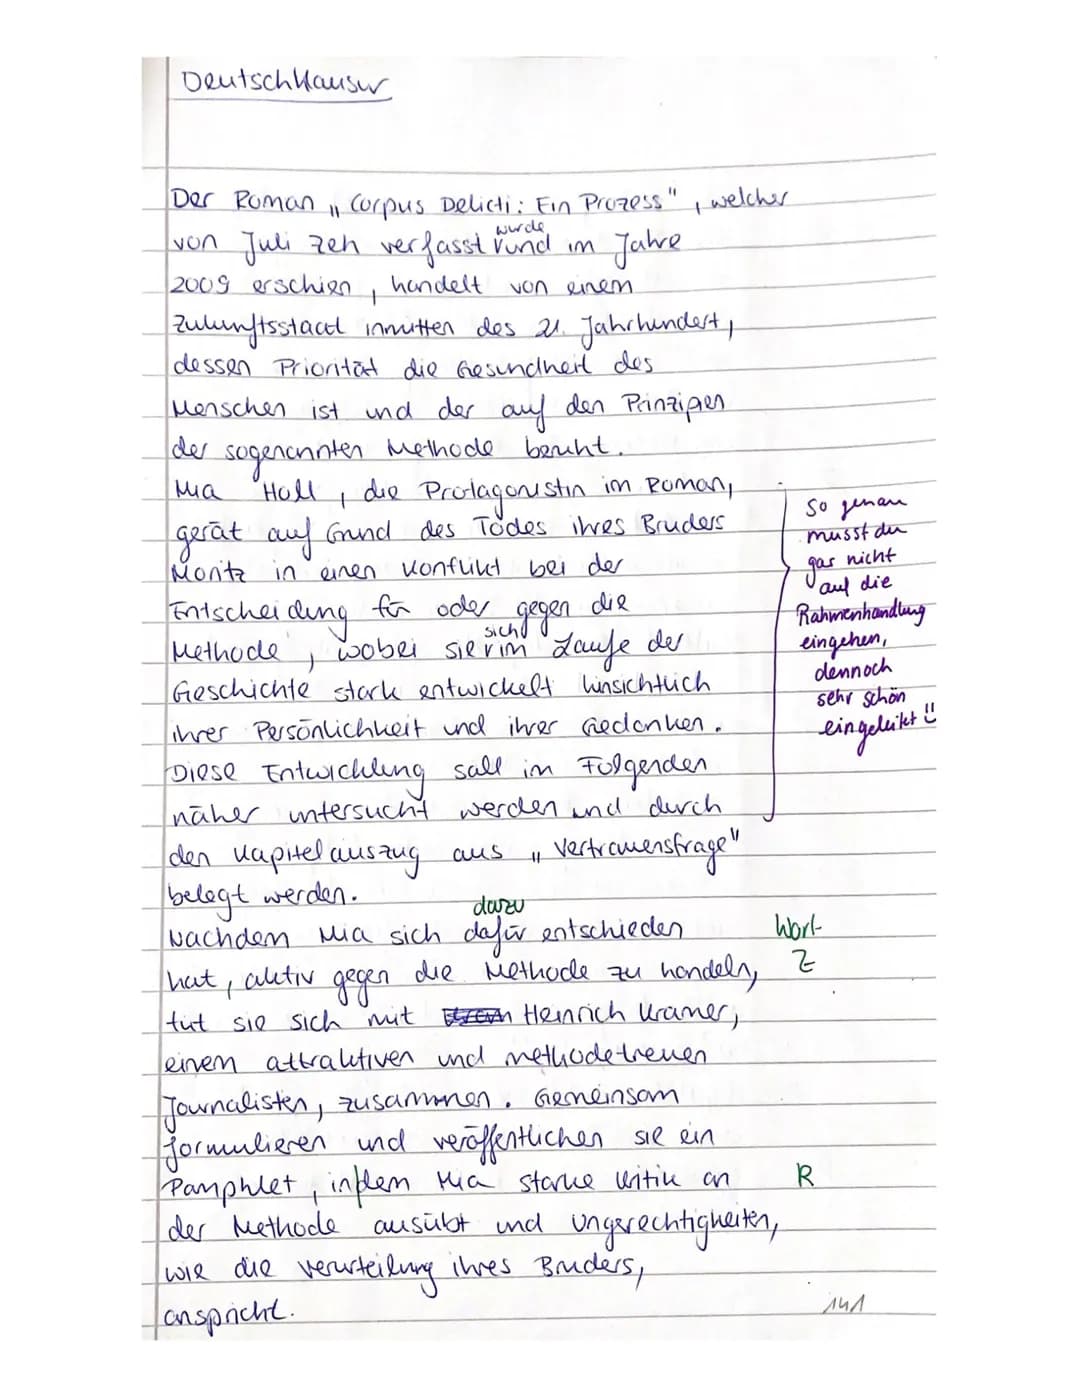 Deutschklausur
Der Roman „Corpus Delicti: Ein Prozess", welcher
wurde
von Juli Zeh verfasst und im Jahre
2009 erschien, handelt von einem
Zukunftsstaat inmitten des 21. Jahrhundert,
dessen Priorität die Gesundheit des
Menschen ist und der auf den Prinzipen
der sogenannten Methode beruht.
Mia Holl, die Protagonistin im Roman,
gerät auf Grund des Todes ihres Bruders
Moritz in einen Konflikt bei der
Entscheidung für oder gegen die
sich
Methode, wobei sie im Laufe der
Geschichte stark entwickelt hinsichtlich
ihrer Persönlichkeit und ihrer Gedanken.
Diese Entwicklung soll im Folgenden
näher untersucht werden und durch
den Kapitelauszug aus „Vertrauensfrage"
belegt werden.
so genau
musst du
gar nicht
auf die
Rahmenhandlung
eingehen,
dennoch
sehr schön
eingeleitet
dazu
Nachdem Mia sich dafür entschieden
Wort
Z
hat, aktiv gegen die Methode zu handeln,
tut sie sich mit Heinrich Kramer,
einem attraktiven und methodetreuen
Journalisten, zusammen. Gemeinsam
formulieren und veröffentlichen sie ein
Pamphlet, indem Mia starke Kritik an
R
der Methode ausübt und Ungerechtigkeiten,
wie die Verurteilung ihres Bruders,
anspricht.
141